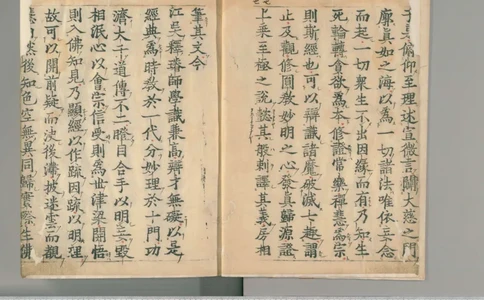 于是俯仰至理述宣微言闡大慈之門
廓真如之海以爲一切諸法唯依妄念
而起一切衆生不出因緣而有乃知生
死輪轉貪欲爲本修證常樂禪悲爲宗
則斯經也可以辯識諸魔破滅七趣謂
止及觀修圓教妙明之心發真歸源證
上乘至極之說懿其般剌譯其義房相
筆其文今
江吳釋璿師學識兼高辯才無礙以是
經典爲時教於一代分妙理於十門功
濟大千道傳不二瞪目合手以明妄毀
相泯心以會宗信受則爲世津梁開悟
則入佛知見乃顯經以作疏因疏以明理
故可以開前疑而決後滯披迷雲而覩
慧日然後知色空無異同歸實際生佛